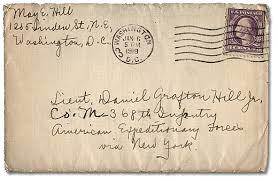 May E. Hill
1206 Linden St. N.E.,
Washington, D.C.
WASHINGTON
D.C.
JAN 6
5 PM
1919
U.S. POSTAGE
Lieut. Daniel Grafton Hill Jr.
Co. M - 368th Infantry
American Expeditionary Forces
via New York.